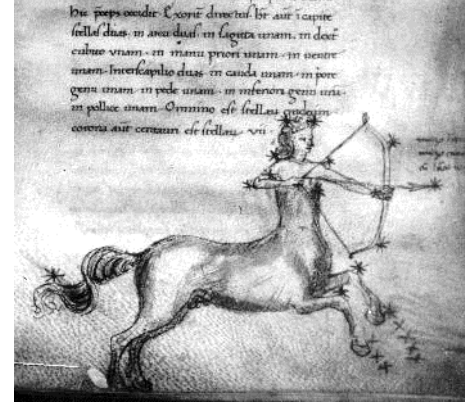 hic p̄ceps occidit. Exorit̄ directus. hr̄ aut̄ i capite
stellas duas. in arcu duas. in sagitta unam. in dext̄
cubito unam. in manu priori unam. in uentre
unam. Interscapilio duas. in cauda unam. in pore
genu unam. in pede unam. in inferiori genu unā.
in pollice unam. Omnino est stellaꝝ quidecim
corona aut̄ centauri est stellaꝝ. vii.